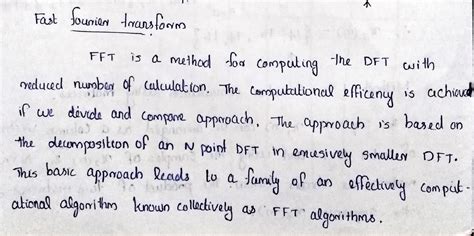 Fast fourier transform
FFT is a method for computing the DFT with
reduced number of calculation. The computational efficeny is achieved
if we devide and compare approach. The approach is based on
the decomposition of an N point DFT in emcesively smaller DFT.
This basic approach leads to a family of an effectively comput-
ational algorithm known collectively as FFT algorithms.